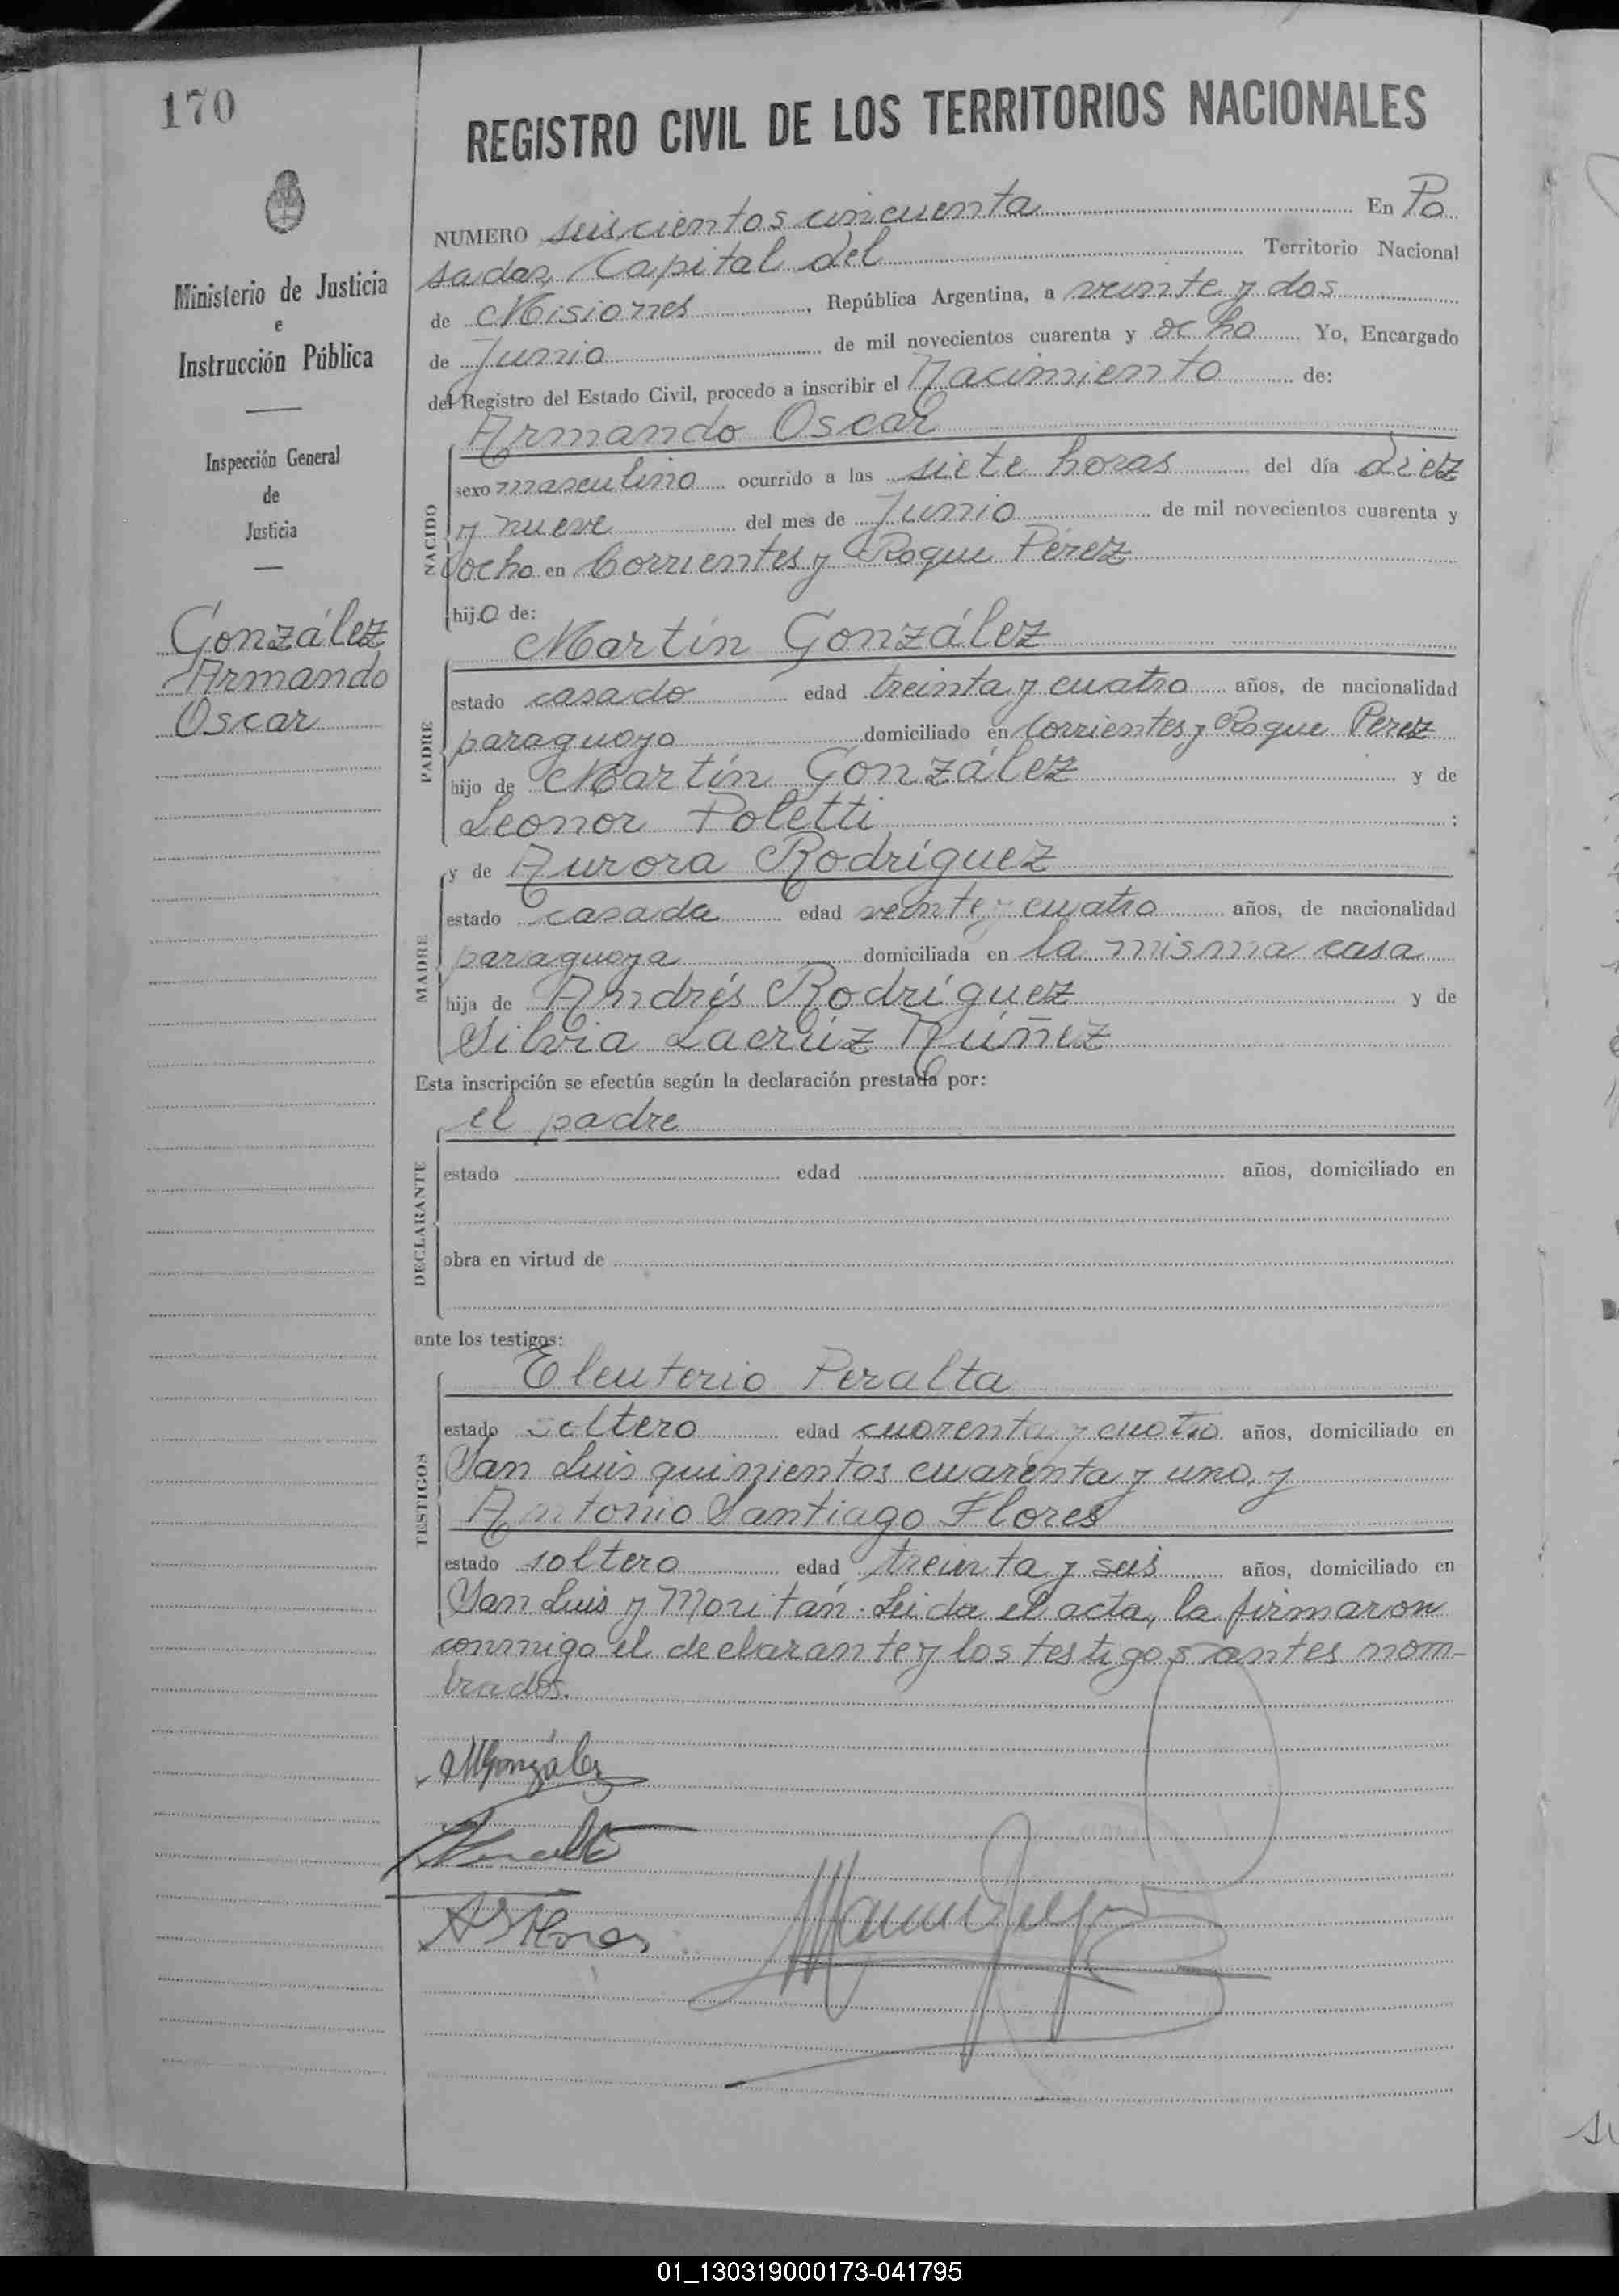 170
REGISTRO CIVIL DE LOS TERRITORIOS NACIONALES
Ministerio de Justicia
e
Instrucción Pública
Inspección General
de
Justicia
González
Armando
Oscar
NUMERO seiscientos cincuenta En Po
sadas, Capital del Territorio Nacional
de Misiones, República Argentina, a veinte y dos
de Junio de mil novecientos cuarenta y ocho Yo, Encargado
del Registro del Estado Civil, procedo a inscribir el Nacimiento de:
NACIDO
Armando Oscar
sexo masculino ocurrido a las siete horas del día diez
y nueve del mes de Junio de mil novecientos cuarenta y
ocho en Corrientes y Roque Pérez
hijo de:
PADRE
Martín González
estado casado edad treinta y cuatro años, de nacionalidad
paraguaya domiciliado en Corrientes y Roque Perez
hijo de Martín González y de
Leonor Poletti ;
MADRE
y de Aurora Rodríguez
estado casada edad veinte y cuatro años, de nacionalidad
paraguaya domiciliada en la misma casa
hija de Andrés Rodríguez y de
Silvia Lacrúz Núñez
Esta inscripción se efectúa según la declaración prestada por:
el padre
DECLARANTE
estado edad años, domiciliado en
obra en virtud de
ante los testigos:
TESTIGOS
Eleuterio Peralta
estado soltero edad cuarenta y cuatro años, domiciliado en
San Luis quinientos cuarenta y uno, y
Antonio Santiago Flores
estado soltero edad treinta y seis años, domiciliado en
San Luis y Moritán. Leida el acta, la firmaron
conmigo el declarante y los testigos antes nom-
brados.
MGonzález
Peralta
ASFlores
01_130319000173-041795